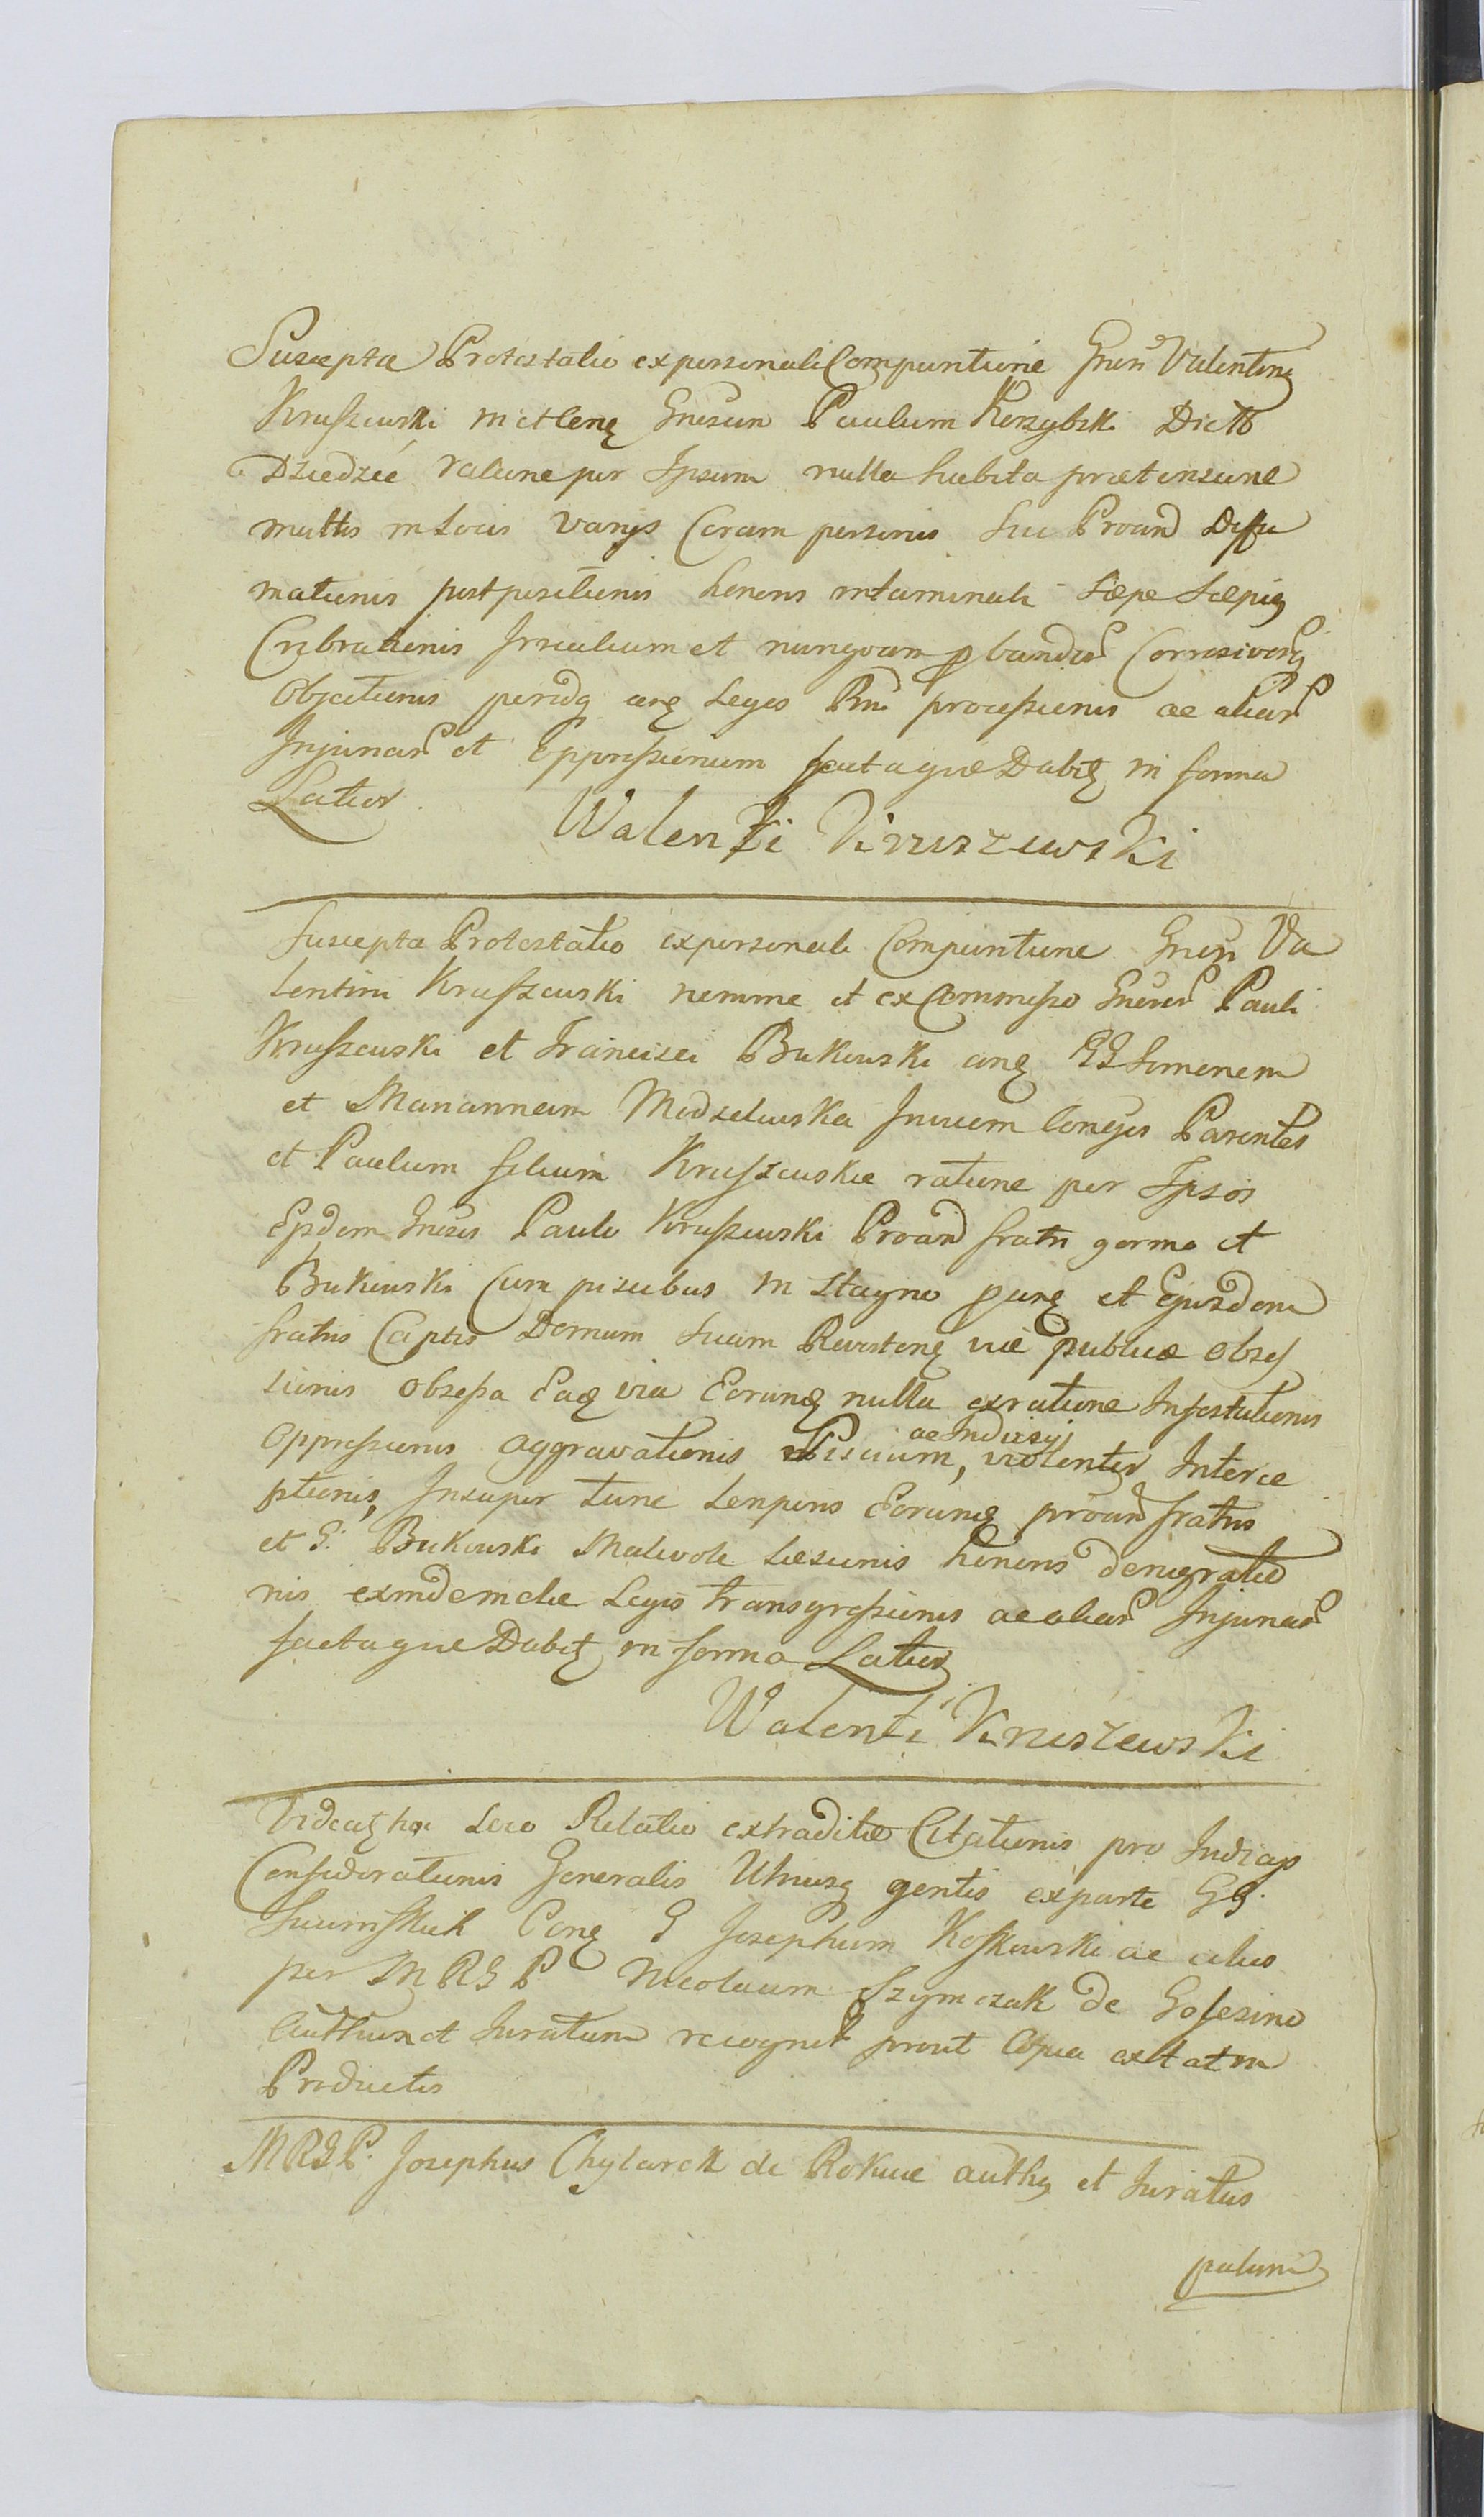 Suscepta Protestatio ex personali Comparitione Gnñ Valentini
Kruszewski met cong Gnosum Paulum Korzybski Dicto
Dziedzić ratione per Ipsum nulla habita prætensione
multis in Locis varijs Coram personis Sui Proand Deffa
mationis postpositionis honoris intaminati Sæpe Sæpiq
Cribrationis et nunquam pbandar Corrosivorq
Objectionis Leges Rni processionis ac aliar
Injuriar et oppressionum factaque Dabitq in forma
Latior.
Walenti Kruszewski
Suscepta Protestatio ex personali Comparitione Gnosi Va
lentini Kruszewski nomine et ex Commisso Gnosor Pauli
Kruszewski et Francisci Bukowski conq GG Simonem
et Mariannam Modzelewska Invicem Conges Parentes
et Paulum filium Kruszewskie ratione per Ipsos
Eisdem Gnosis Paulo Kruszewski Proand fratri germo et
Bukowski Cum piscibus in stagno et Ejusdem
fratris Captis Domum Suam Revertenq viæ publicæ obses
sionis obsessa Eaq via Eorunq nulla ex ratione Infestationis
oppressionis aggravationis Piscium, ac Indusij violenter Interce
ptionis, Insuper tunc temporis Eorunq proand fratris
et G: Bukowski Malevole læsionis honoris denigratio
nis exindemche Legis transgressionis ac aliar Injuriar
factaque Dabitq in forma Latior
Walenti Kruszewski
Videatq hoc Loco Relatio extraditæ Citationis pro Judicijs
Confœderationis Generalis Utriusq gentis ex parte GG.
Conq G Josephum Koskowski ac alios
per MRGP Nicolaum Szymczak de Golesino
Authen et Juratum recognit prout Copia extat in
Productis
MRGP. Josephus Chylarek de Rokicie authq et Juratus
palam